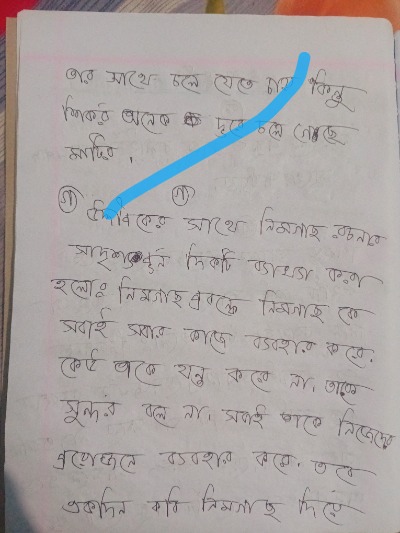 তার সাথে চলে যেতে চায় কিন্তু
শিকর অনেক দূরে চলে গেছে
মাটির।
গ গ
উদ্দীপকের সাথে নিমগাছ রচনার
সাদৃশ্যপূর্ণ দিকটি ব্যাখ্যা করা
হলোঃ নিমগাছ প্রবন্ধে নিমগাছ কে
সবাই সবার কাজে ব্যবহার করে।
কেউ তাকে যত্ন করে না। তাকে
সুন্দর বলে না। সবাই তাকে নিজেদের
প্রয়োজনে ব্যবহার করে। তবে
একদিন কবি নিমগাছ দিয়ে